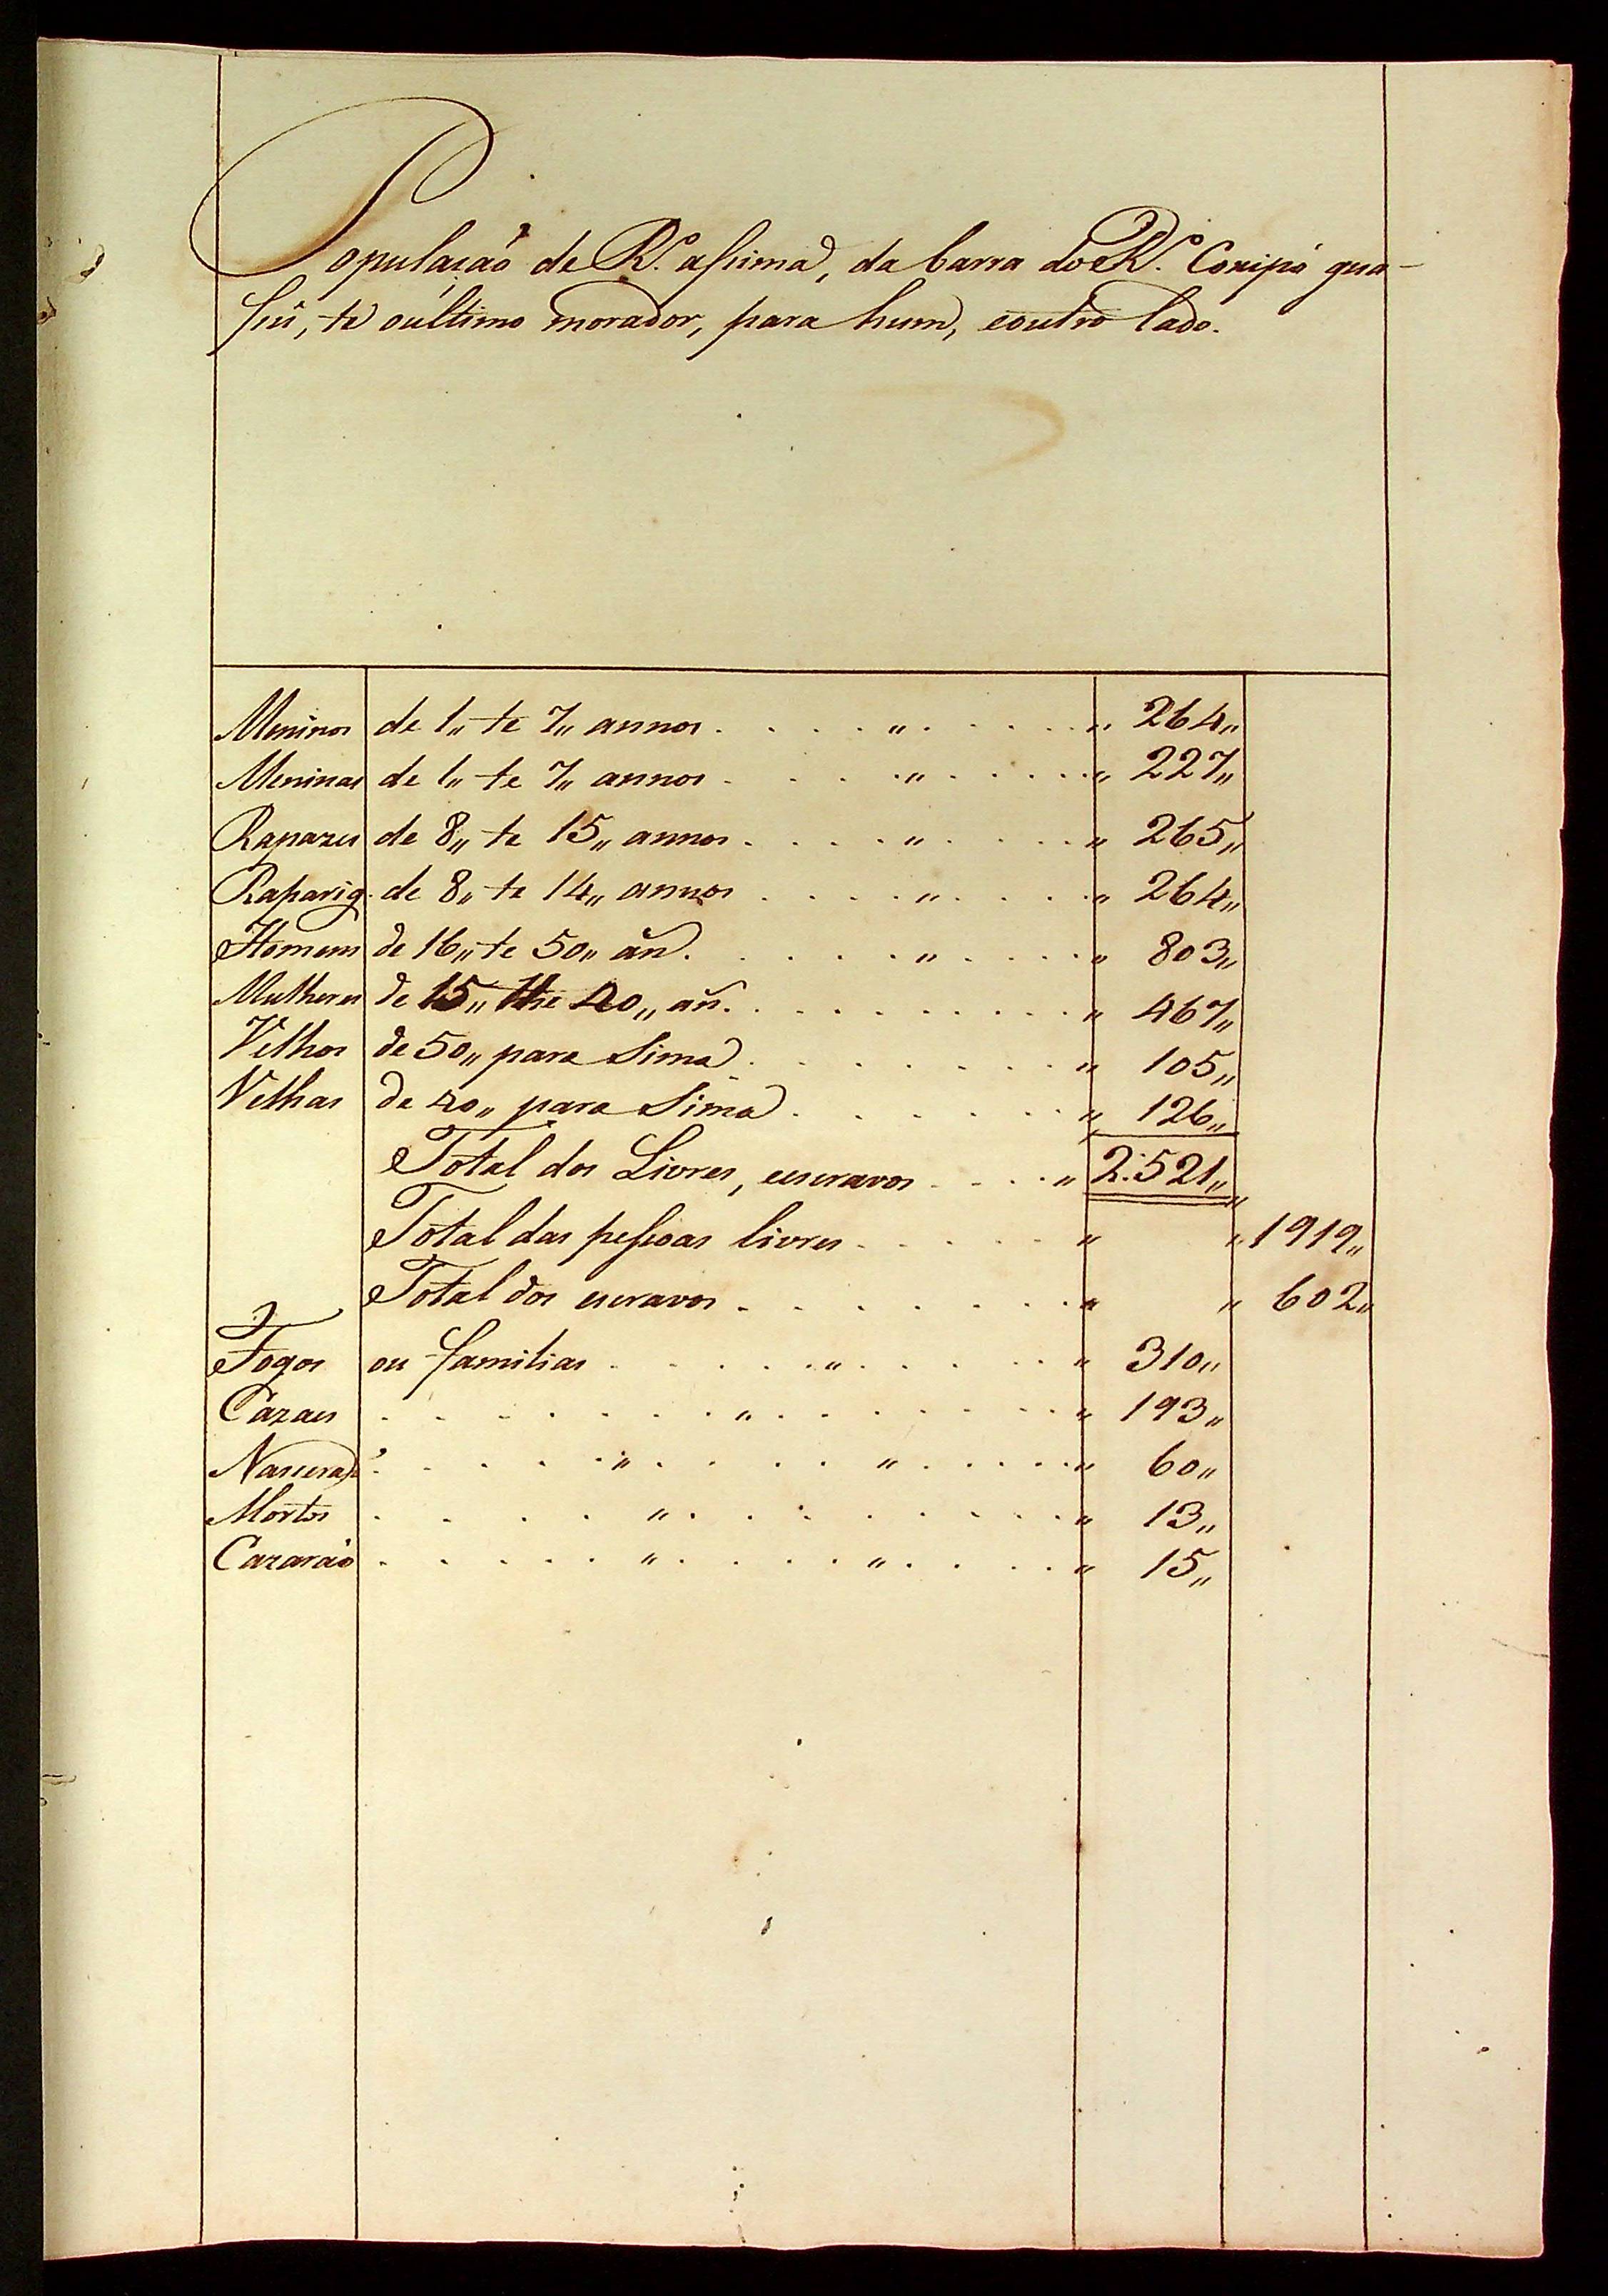 População de R.º assima, da barra do R.º Coxipó gua-
ssú, te oultimo morador, para hum, eoutro lado.
Meninos de 1,, te 7,, annos . . . . ,, . . . . ,, 264,,
Meninas de 1,, te 7,, annos . . . . ,, . . . . ,, 227,,
Rapazes de 8,, te 15,, annos . . . . ,, . . . . ,, 265,,
Raparig. de 8,, te 14,, annos . . . . ,, . . . . ,, 264,,
Homens de 16,, te 50,, añ. . . . . ,, . . . . ,, 803,,
Mulheres de 15,, the 40,, añ. . . . . . . . . . ,, 467,,
Velhos de 50,, para Sima . . . . . . . . ,, 105,,
Velhas de 40,, para Sima . . . . . . . ,, 126,,
Total dos Livres, eescravos . . . . ,, 2:521,,
Total das pessoas livres . . . . . ,, ,, 1919,,
Total dos escravos . . . . . . . ,, ,, 602,,
Fogos ou familias . . . . . ,, . . . . ,, 310,,
Cazaes . . . . . . . ,, . . . . . . ,, 193,,
Nascerão . . . . . ,, . . . . ,, . . . . ,, 60,,
Mortos . . . . . ,, . . . . . . . . ,, 13,,
Cazarão . . . . . ,, . . . . ,, . . . . ,, 15,,